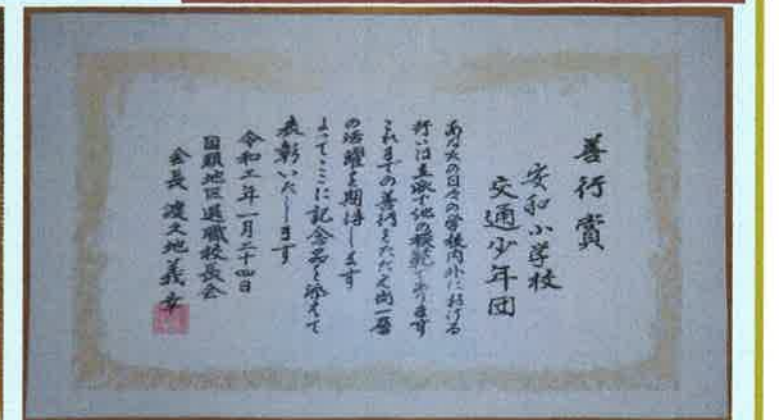 善行賞
安和小学校
交通少年団
あなたの日々の学校内外における
行いは立派で他の模範であります
これまでの善行をたたえ尚一層
の活躍を期待します
よってここに記念品を添えて
表彰いたします
令和五年一月二十四日
国頭地区退職校長会
会長 渡久地義幸